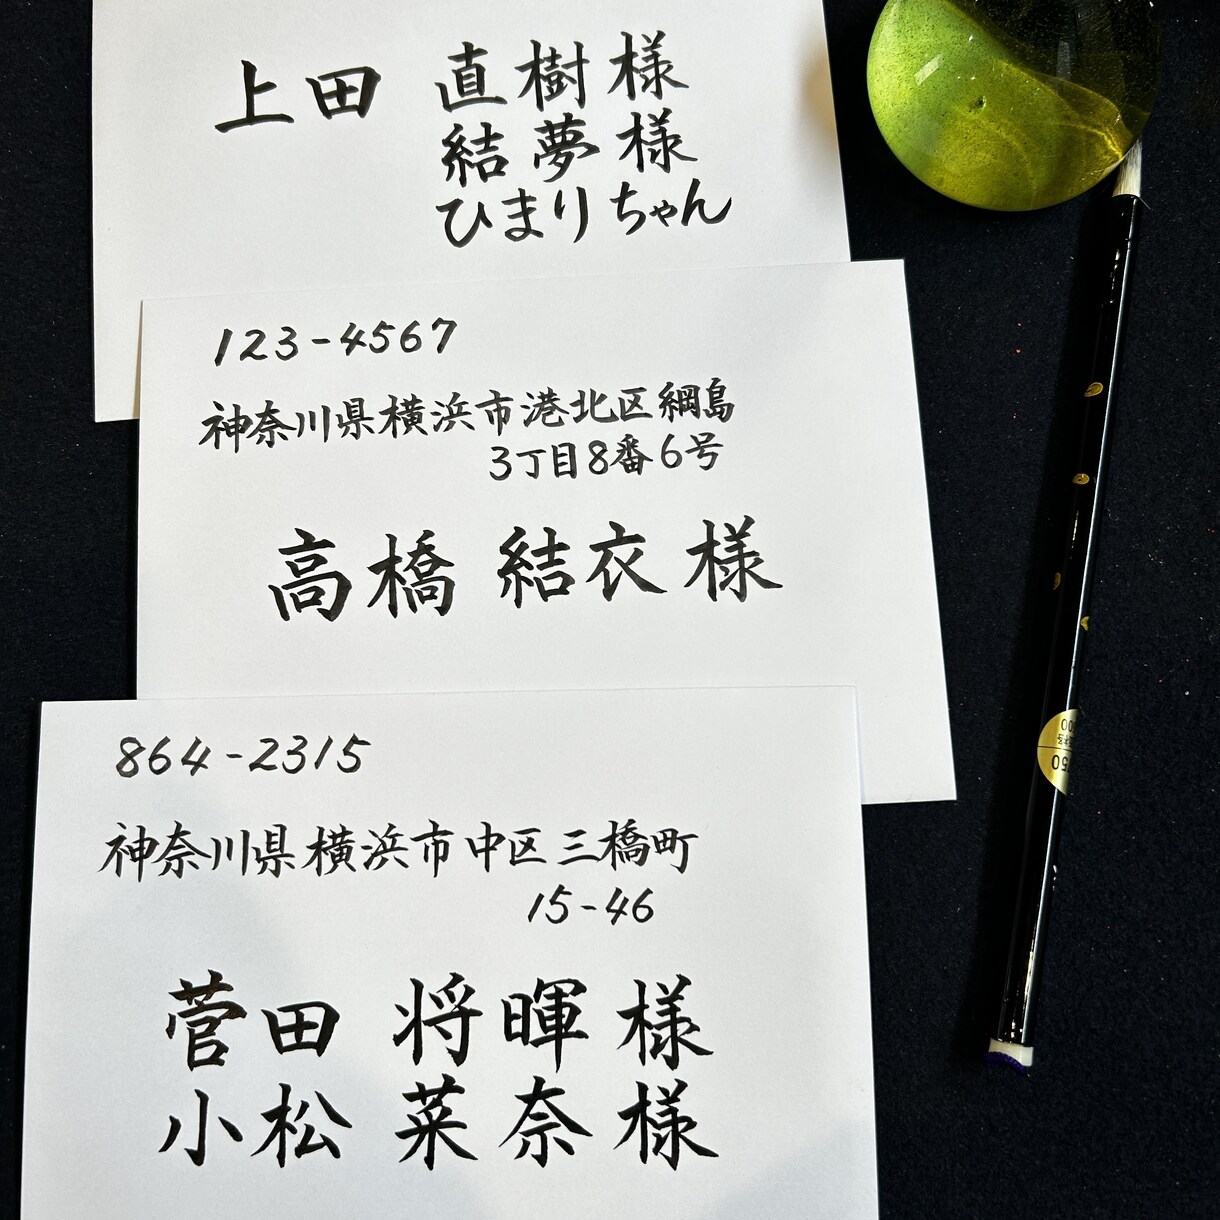 上田 直樹様
結夢様
ひまりちゃん
123-4567
神奈川県横浜市港北区綱島
3丁目8番6号
高橋 結衣様
864-2315
神奈川県横浜市中区三橋町
15-46
菅田 将暉様
小松 菜奈様